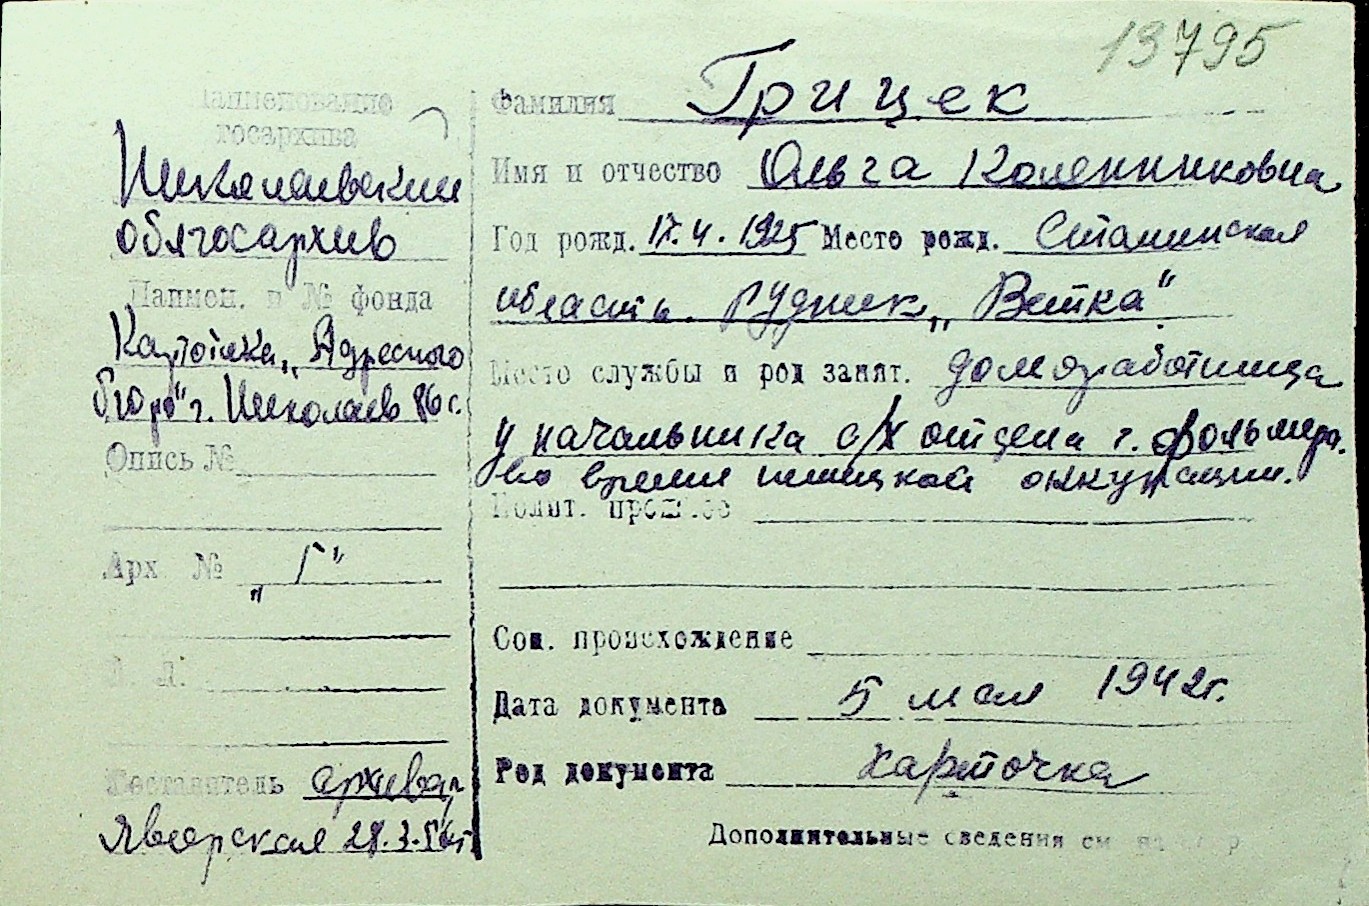 13795
Наименование
госархива
Николаевский
облгосархив
Наимен. и № фонда
Картотека „Адресного
бюро" г. Николаев
Опись №
Арх №  „Г"
Л. Л.
Составитель архива
Яворская 28.3.56г
Фамилия Грицек
Имя и отчество Ольга
Год рожд. 17.4.1925 Место рожд. Сталинская
область. рудник „Ветка"
Место службы и род занят. домработница
у начальника с/х отдела г. Фольмера.
во время немецкой оккупации.
Полит. прошлое
Соц. происхождение
Дата документа 5 мая 1942г.
Род документа карточка
Дополнительные сведения см на обор